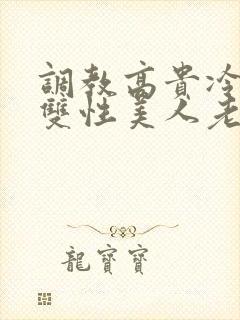 調教高貴冷
雙性美人老
龍寶寶